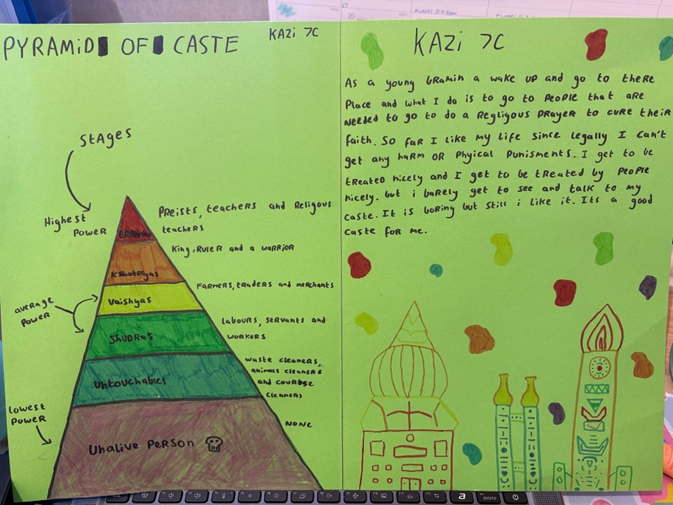 PYRAMID OF CASTE
KAZi 7C
StAgEs
Highest
Power
Preists, teachers and Religous
teachers
King, Ruler and a warrior
Kshatriyas
Farmers, traders and merchants
Vaishyas
average
Power
Labours, servants and
workers
Shudras
waste cleaners,
animals cleaners
and courpse
cleaners
Untouchables
Lowest
Power
NONE
Unalive Person
KAZi 7C
As a young bramin a wake up and go to there
Place and what I do is to go to People that are
Needed to go to do a Regligious Prayer to cure their
faith. So far I like my life since legally I can't
get any harm or Phyical Punisments. I get to be
treated nicely and I get to be treated by People
nicely. but i barely get to see and talk to my
caste. It is boring but still i like it. Its a good
caste for me.